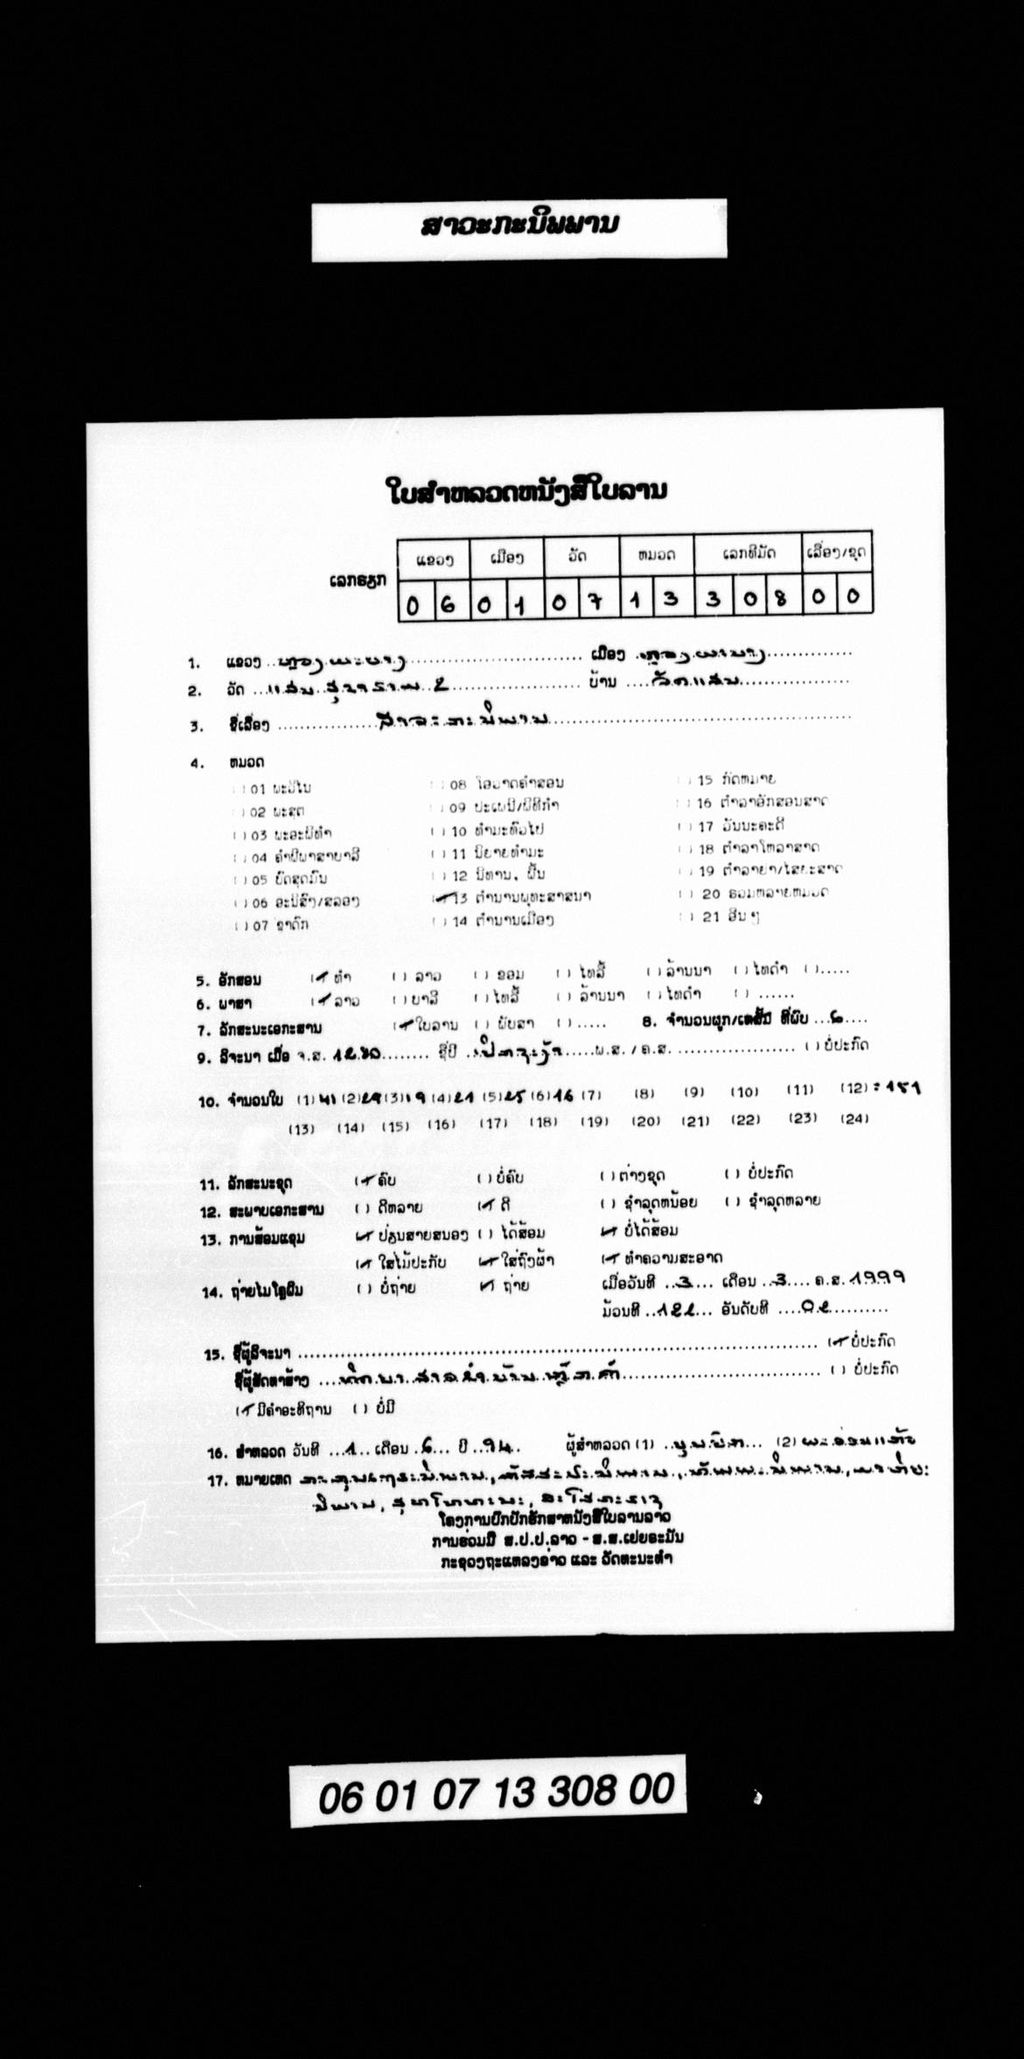 ສາວະກະນິພພານ
ໃບສຳຫລວດຫນັງສືໃບລານ
ແຂວງ ເມືອງ ວັດ ຫມວດ ເລກທີມັດ ເລື່ອງ/ຊຸດ
ເລກຮຽກ 0 6 0 1 0 7 1 3 3 0 8 0 0
1. ແຂວງ ..ຫຼວງພະບາງ.. ເມືອງ ..ຫຼວງພະບາງ..
2. ວັດ ...ແສນສຸຂາຣາມ.. ບ້ານ ....ວັດແສນ....
3. ຊື່ເລື່ອງ .... ສາວະກະນິພານ....
4. ຫມວດ
( ) 01 ພະວິໄນ ( ) 08 ໂອວາດຄຳສອນ ( ) 15 ກົດຫມາຍ
( ) 02 ພະສຸດ ( ) 09 ປະເພນີ/ພິທີກຳ ( ) 16 ຕຳລາອັກສອນສາດ
( ) 03 ພະອະພິທຳ ( ) 10 ທຳມະທົ່ວໄປ ( ) 17 ວັນນະຄະດີ
( ) 04 ຄຳພີພາສາບາລີ ( ) 11 ນິຍາຍທຳມະ ( ) 18 ຕຳລາໂຫລາສາດ
( ) 05 ບົດສູດມົນ ( ) 12 ນິທານ, ພື້ນ ( ) 19 ຕຳລາຢາ/ໄສຍະສາດ
( ) 06 ອະນິສົງ/ສລອງ (✓) 13 ຕຳນານພຸທະສາສນາ ( ) 20 ຮວມຫລາຍຫມວດ
( ) 07 ຊາດົກ ( ) 14 ຕຳນານເມືອງ ( ) 21 ອື່ນໆ
5. ອັກສອນ (✓) ທຳ ( ) ລາວ ( ) ຂອມ ( ) ໄທລື້ ( ) ລ້ານນາ ( ) ໄທດຳ ( ).....
6. ພາສາ (✓) ລາວ ( ) ບາລີ ( ) ໄທລື້ ( ) ລ້ານນາ ( ) ໄທດຳ ( ) ......
7. ລັກສະນະເອກະສານ (✓) ໃບລານ ( ) ພັບສາ ( )..... 8. ຈຳນວນຜູກ/ເຫລັ້ມ ທີ່ພົບ ...6....
9. ລິຈະນາ ເມື່ອ ຈ.ສ. 1230........ ຊື່ປີ ......ພ.ສ. / ຄ.ສ. .................... ( ) ບໍ່ປະກົດ
10. ຈຳນວນໃບ (1) 41 (2) 29 (3) 19 (4) 21 (5) 25 (6) 16 (7) (8) (9) (10) (11) (12) = 151
(13) (14) (15) (16) (17) (18) (19) (20) (21) (22) (23) (24)
11. ລັກສະນະຊຸດ (✓) ຄົບ ( ) ບໍ່ຄົບ ( ) ຕ່າງຊຸດ ( ) ບໍ່ປະກົດ
12. ສະພາບເອກະສານ ( ) ດີຫລາຍ (✓) ດີ ( ) ຊຳລຸດຫນ້ອຍ ( ) ຊຳລຸດຫລາຍ
13. ການສ້ອມແຊມ (✓) ປ່ຽນສາຍສນອງ ( ) ໄດ້ສ້ອມ (✓) ບໍ່ໄດ້ສ້ອມ
(✓) ໃສ່ໄມ້ປະກັບ (✓) ໃສ່ຖົງຜ້າ (✓) ທຳຄວາມສະອາດ
14. ຖ່າຍໄມໂຄຼຟີມ ( ) ບໍ່ຖ່າຍ (✓) ຖ່າຍ ເມື່ອວັນທີ ..3.... ເດືອນ ..3.... ຄ.ສ. 1999
ມ້ວນທີ ..122... ອັນດັບທີ ....02..........
15. ຊື່ຜູ້ລິຈະນາ .......... (✓) ບໍ່ປະກົດ
ຊື່ຜູ້ສັດທາສ້າງ ............ ( ) ບໍ່ປະກົດ
(✓) ມີຄຳອະທິຖານ ( ) ບໍ່ມີ
16. ສຳຫລວດ ວັນທີ ...1... ເດືອນ .6... ປີ ..94.. ຜູ້ສຳຫລວດ (1) ..ບຸນມີ... (2) ພະອ່ອນແກ້ວ
17. ຫມາຍເຫດ
ນິພານ,
ໂຄງການປົກປັກຮັກສາຫນັງສືໃບລານລາວ
ການຮ່ວມມື ສ.ປ.ປ.ລາວ - ສ.ສ.ເຢຍຣະມັນ
ກະຊວງຖະແຫລງຂ່າວ ແລະ ວັດທະນະທຳ
06 01 07 13 308 00